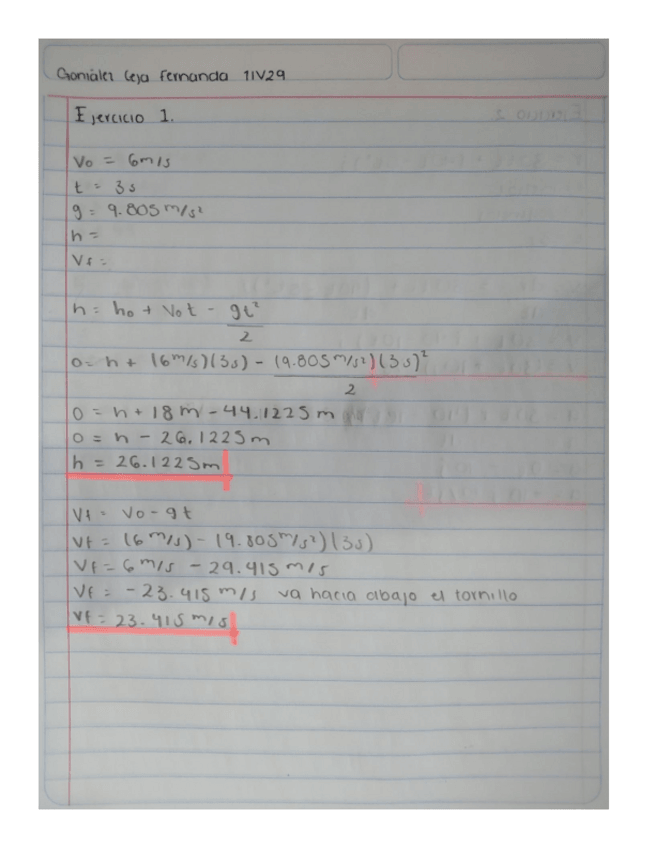 González Ceja Fernanda 1IV29
Ejercicio 1.
Vo = 6m/s
t = 3s
g = 9.805 m/s²
h =
Vf =
h = ho + Vot - gt²/2
0 = h + (6m/s)(3s) - (9.805m/s²)(3s)²/2
0 = h + 18m - 44.1225m
0 = h - 26.1225m
h = 26.1225m
Vf = Vo - gt
Vf = (6m/s) - (9.805m/s²)(3s)
Vf = 6m/s - 29.415 m/s
Vf = -23.415 m/s va hacia abajo el tornillo
Vf = 23.415 m/s